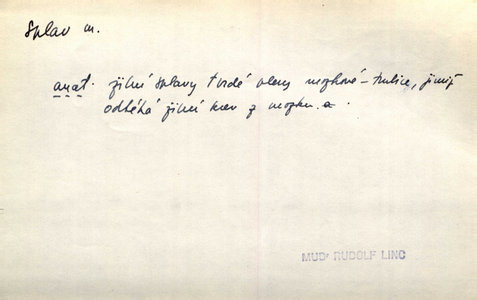 Splav m.
anat. žilní splavy tvrdé pleny mozkové – trubice, jimiž
odtéká žilní krev z mozku. a
MUDr RUDOLF LINC